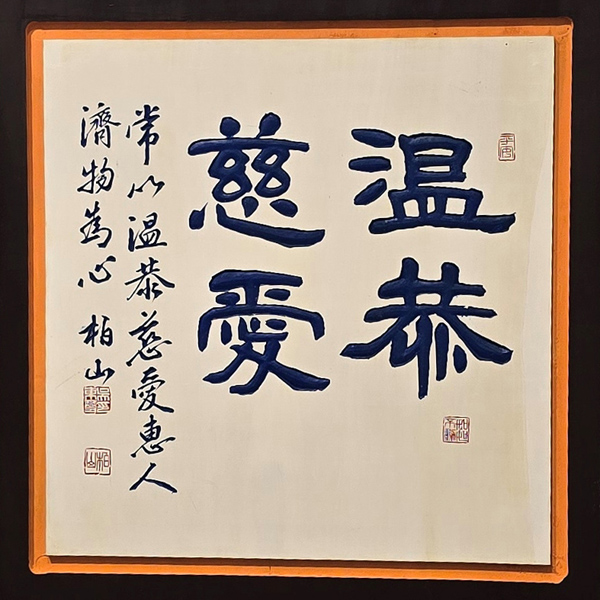 温恭
慈愛
常以温恭慈愛惠人
濟物為心 柏山